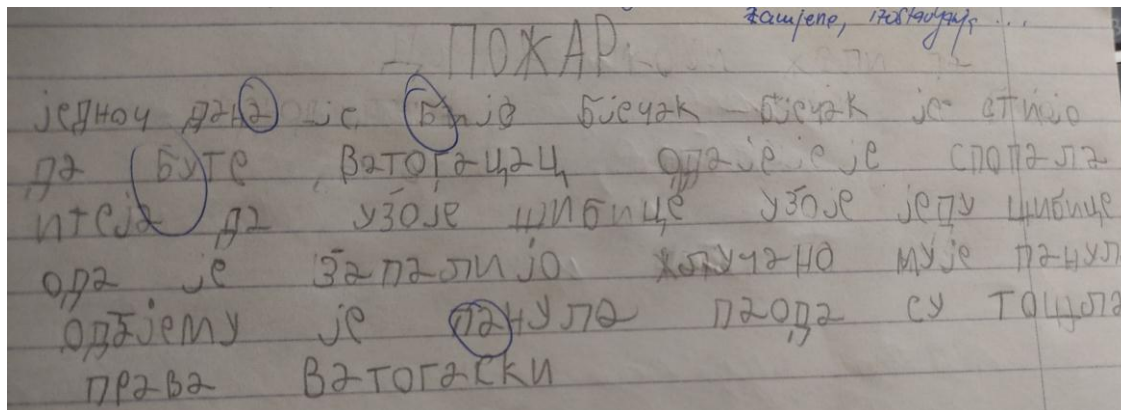 замјене, изостављања, ...
ПОЖАР
једноч дана је Бије Бјечак Бјечак је стијо
да Буте ватогацац одајејеје спопала
итеја да узоје шибице узоје једу шибице
ода је запалијо случано мује панул
одајему је панула паода су тошла
права ватогаски